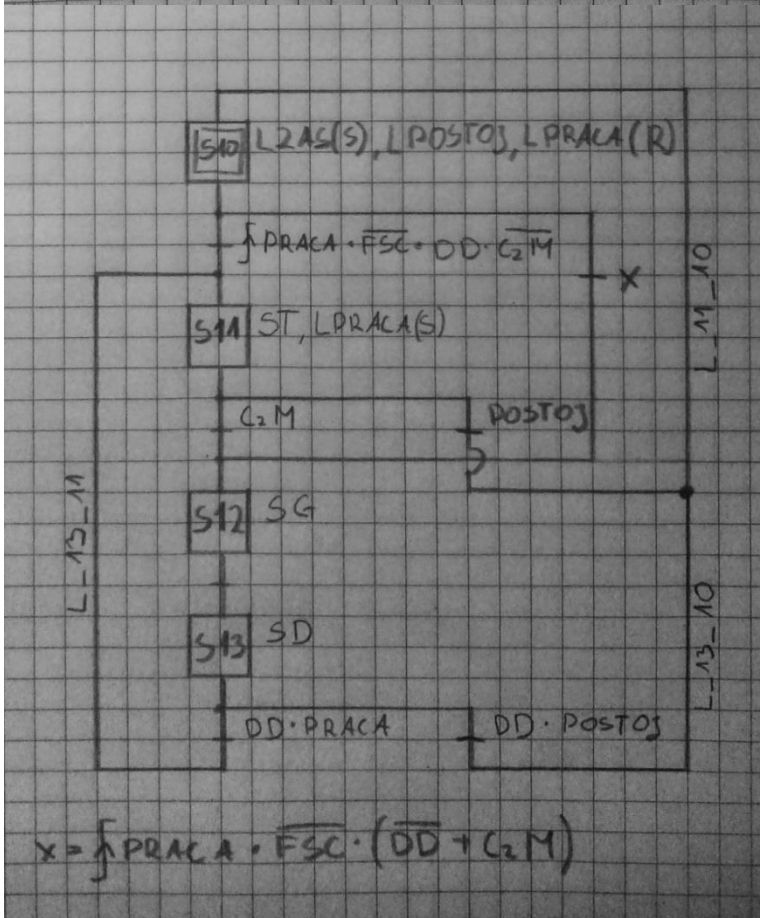 S10 LZAS(S), LPOSTOJ, LPRACA(R)
∫PRACA · F̅S̅C̅ · DD · C̅₂̅M̅
X
L_11_10
S11 ST, LPRACA(S)
C₂M
POSTOJ
L_13_11
S12 SG
S13 SD
L_13_10
DD·PRACA
DD·POSTOJ
X = ∫PRACA · F̅S̅C̅ · (D̅D̅ + C₂M)